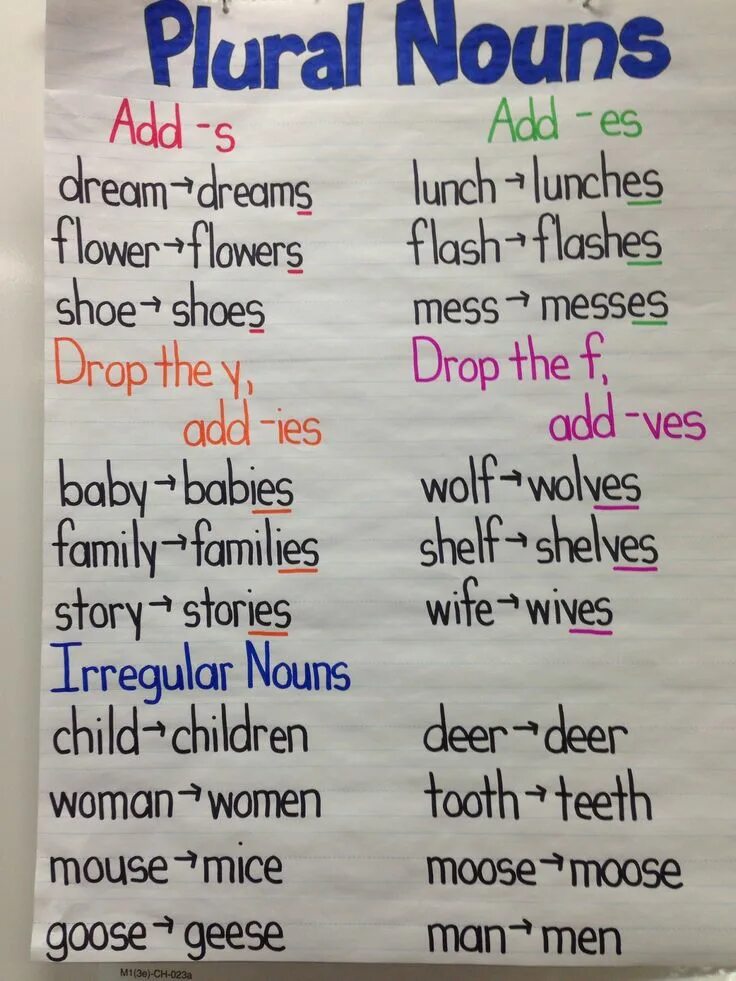 Plural Nouns
Add -s
dream→dreams
flower→flowers
shoe→shoes
Add -es
lunch→lunches
flash→flashes
mess→messes
Drop the y,
add -ies
baby→babies
family→families
story→stories
Drop the f,
add -ves
wolf→wolves
shelf→shelves
wife→wives
Irregular Nouns
child→children
woman→women
mouse→mice
goose→geese
deer→deer
tooth→teeth
moose→moose
man→men
M1(3e)-CH-023a